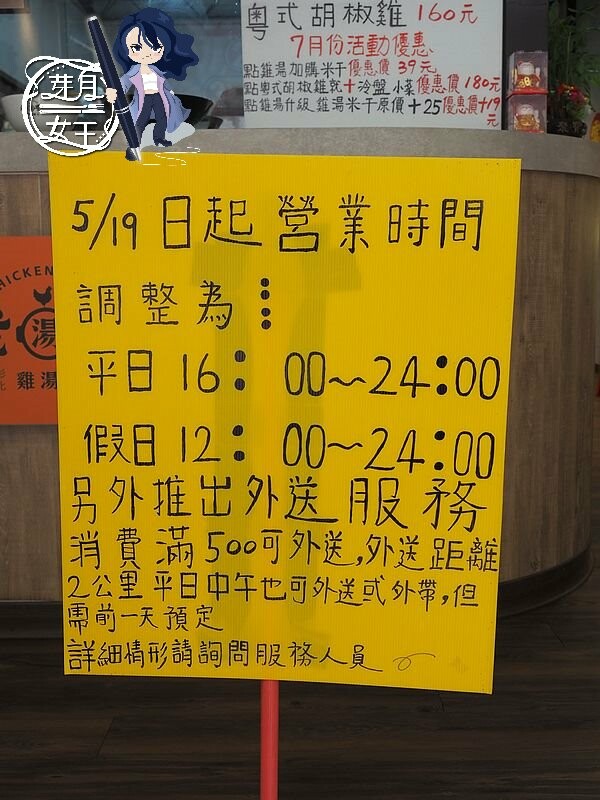 粵式胡椒雞 160元
7月份活動優惠
點雞湯加購米干優惠價 39元
點粵式胡椒雞就+冷盤小菜優惠價180元
點雞湯升級雞湯米干原價+25優惠+19元
芽月
女王
5/19日起營業時間
調整為:
平日16:00~24:00
假日12:00~24:00
另外推出外送服務
消費滿500可外送,外送距離
2公里平日中午也可外送或外帶,但
需前一天預定
詳細情形請詢問服務人員
CHICKEN
湯
雞湯